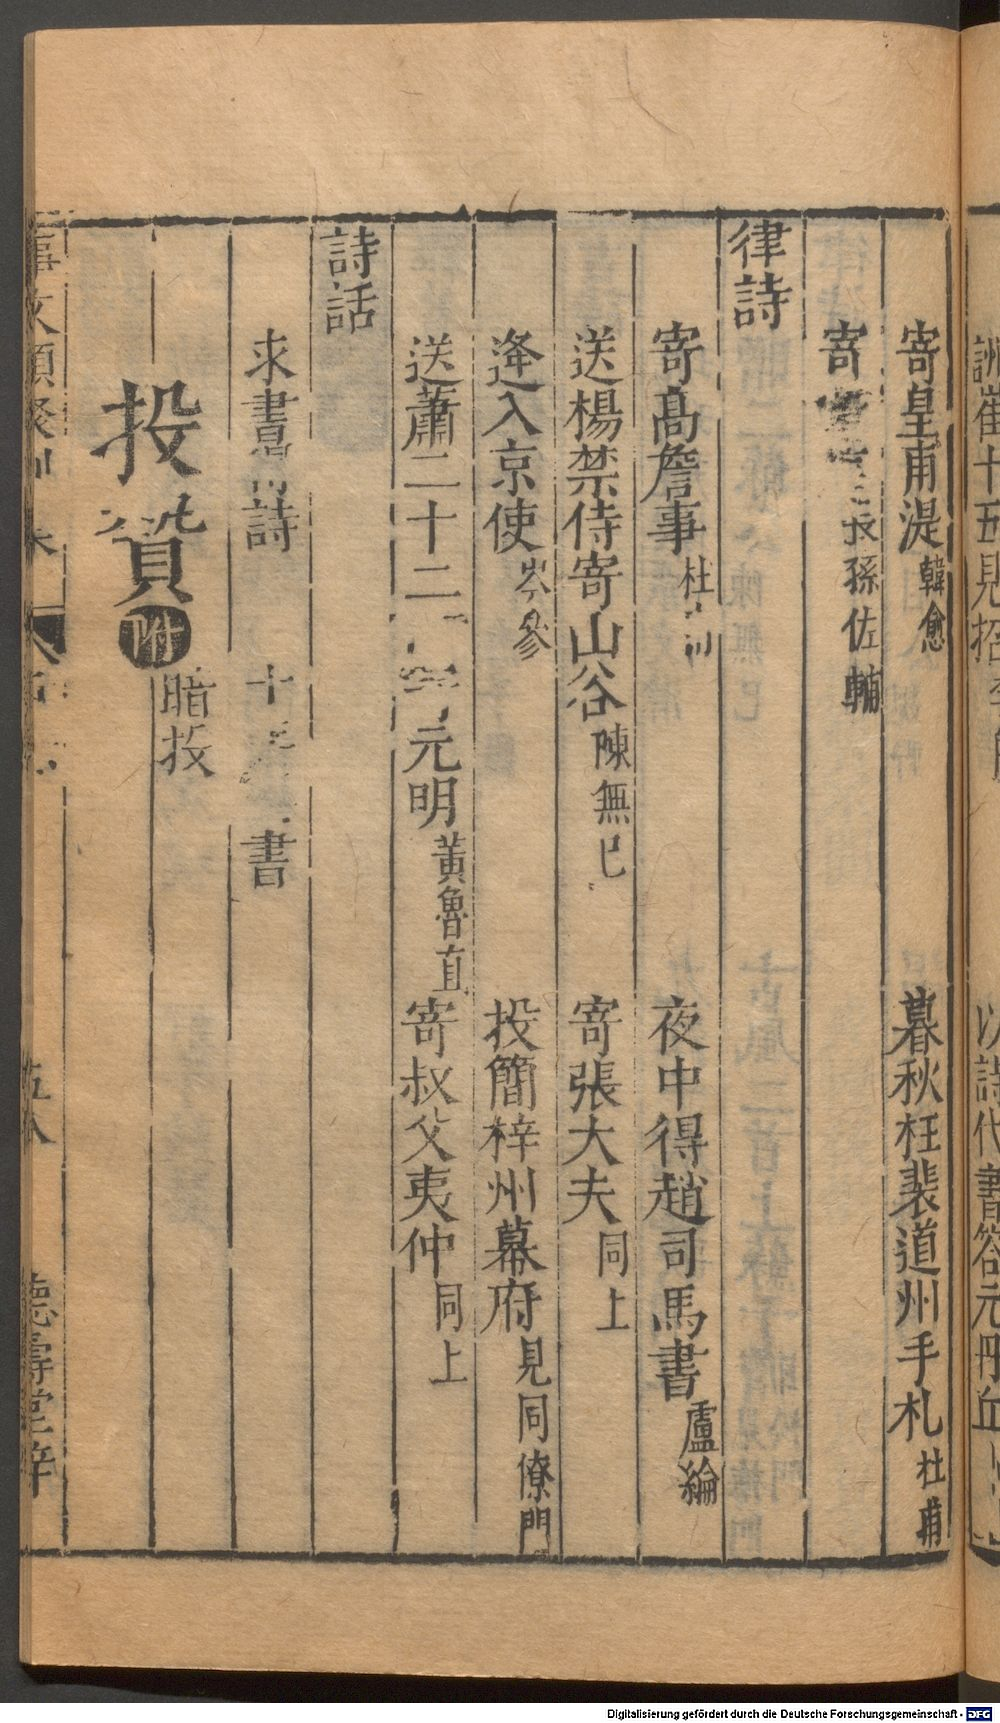 寄皇甫湜 韓愈 暮秋枉裴道州手札 杜甫
寄 長孫佐輔
律詩
寄高詹事 杜 夜中得趙司馬書 盧綸
送楊禁侍寄山谷 陳無巳 寄張大夫 同上
逄入京使 岑參 投簡梓州幕府 見同僚門
送蕭二十二 元明 黃魯直 寄叔父夷仲 同上
詩話
求書 詩 十 書
投贄 附 暗投
事文類聚別 五八 德壽堂梓
崔十五見招 以詩代書答元丹丘
Digitalisierung gefördert durch die Deutsche Forschungsgemeinschaft - DFG